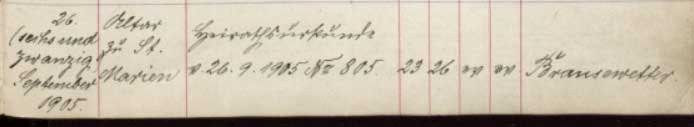 26.
(sechs und
zwanzig)
September
1905.
Altar
zu St.
Marien
Heirathsurkunde
v. 26. 9. 1905 No 805.
23
26
ev
ev.
Brausewetter.